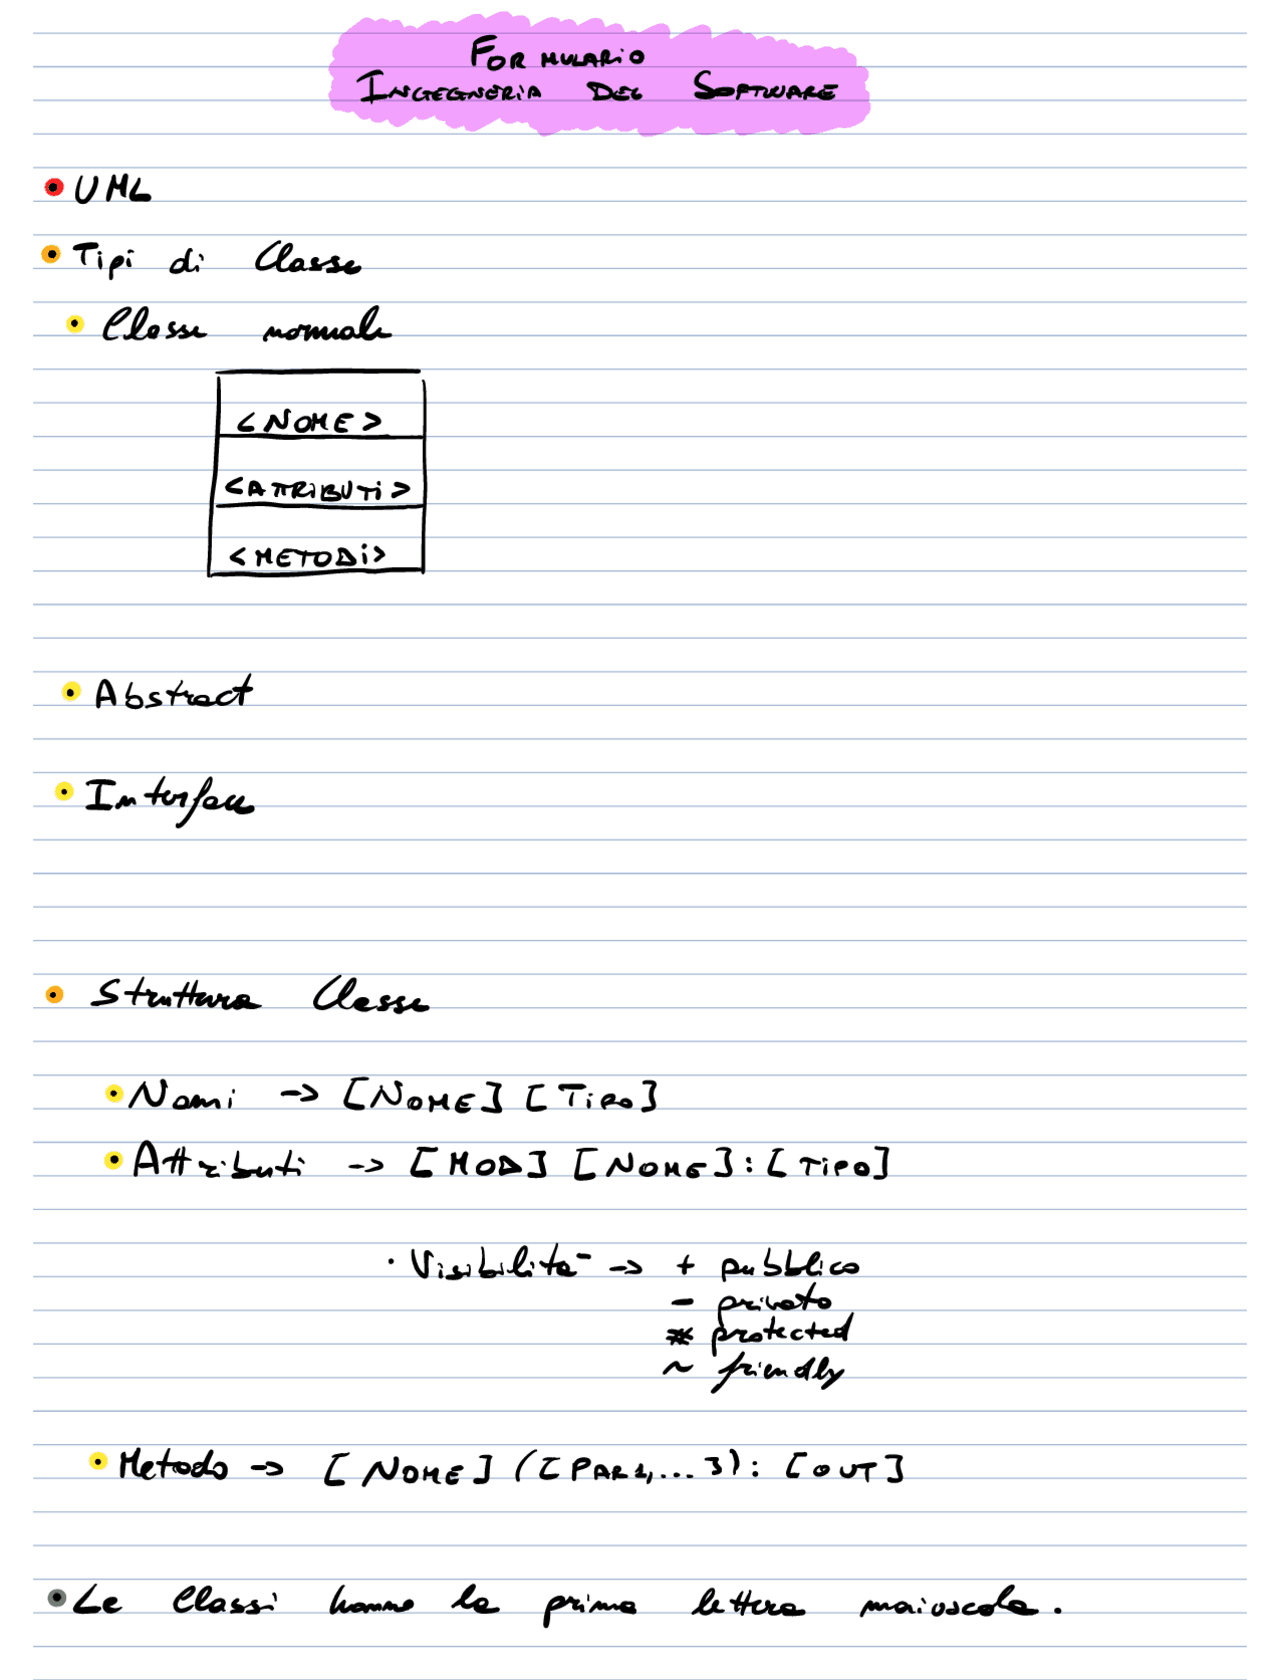 FORMULARIO
INGEGNERIA DEL SOFTWARE
• UML
• Tipi di Classe
• Classe normale
<NOME>
<ATTRIBUTI>
<METODI>
• Abstract
• Interface
• Struttura Classe
• Nomi -> [NOME] [TIPO]
• Attributi -> [MOD] [NOME]: [TIPO]
· Visibilità -> + pubblico
- privato
# protected
~ friendly
• Metodo -> [NOME] ([PAR1,...]): [OUT]
• Le Classi hanno la prima lettera maiuscola.